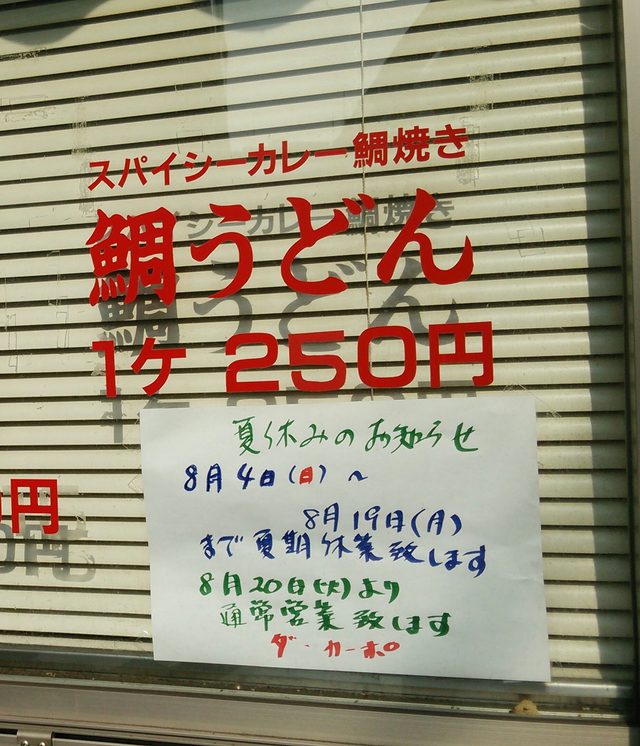 スパイシーカレー鯛焼き
鯛うどん
1ケ 250円
0円
夏休みのお知らせ
8月4日(日)~
8月19日(月)
まで夏期休業致します
8月20日(火)より
通常営業致します
ダ・カーポ